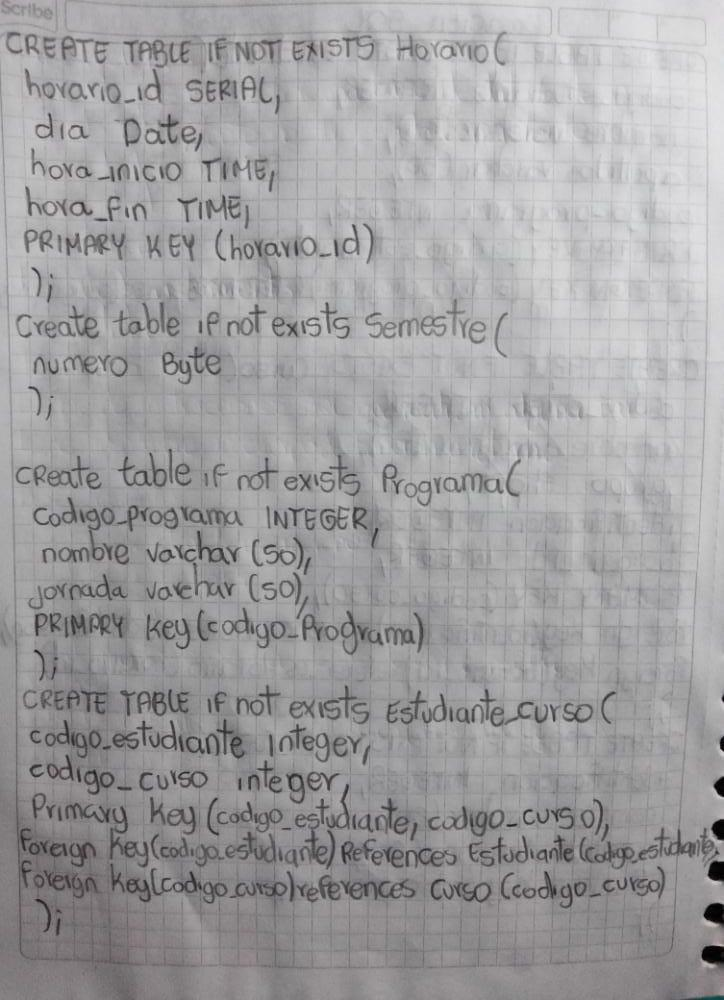 Scribe
CREATE TABLE IF NOT EXISTS Horario(
horario_id SERIAL,
dia Date,
hora_inicio TIME,
hora_fin TIME,
PRIMARY KEY (horario_id)
);
Create table if not exists Semestre(
numero Byte
);
Create table if not exists Programa(
codigo_programa INTEGER,
nombre varchar (50),
jornada varchar (50),
PRIMARY key(codigo_Programa)
);
CREATE TABLE if not exists Estudiante_curso(
codigo_estudiante integer,
codigo_curso integer,
Primary key (codigo_estudiante, codigo_curso),
foreign key(codigo_estudiante) References Estudiante(codigo_estudiante),
foreign key(codigo_curso) references curso (codigo_curso)
);